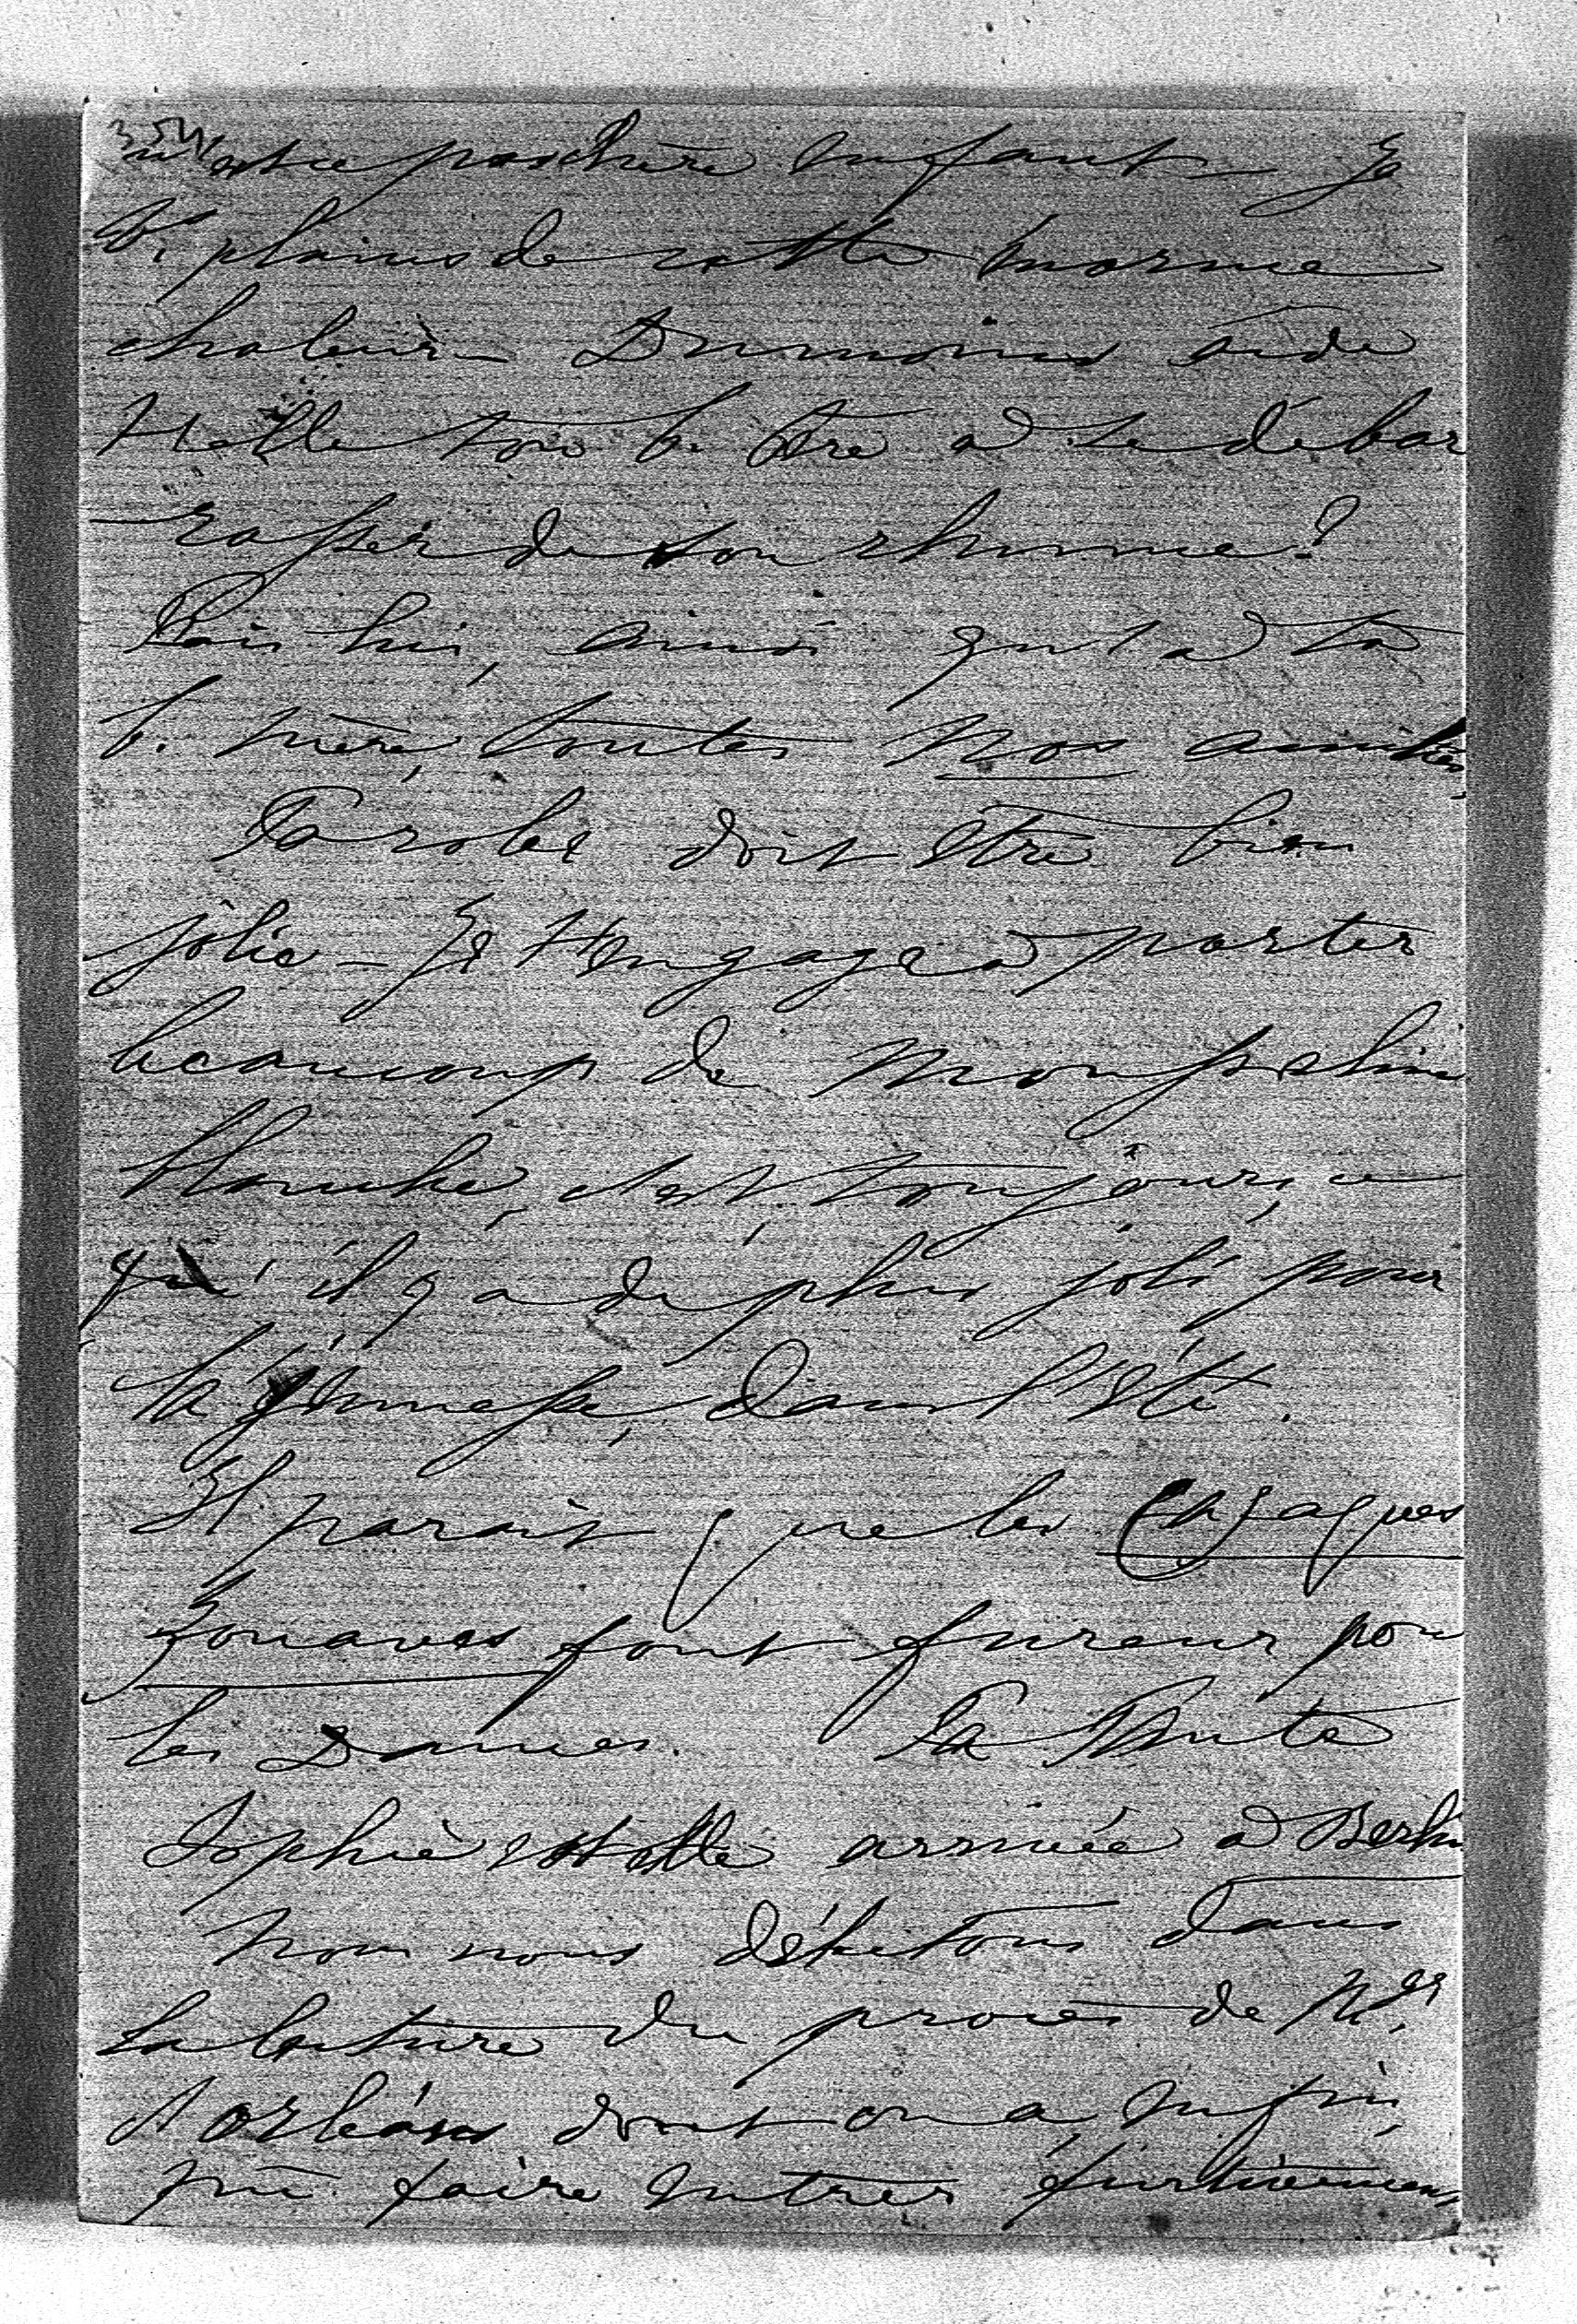 354
n'est ce pas chère enfant – Je
te plains de cette énorme
chaleur – Du moins aide
t-elle ton b. Père à se débar
rasser de son rhume?
Dis lui, ainsi qu'à ta
b. mère, toutes nos amitiés,
Ta robe doit être bien
jolie – Je t'engage à porter
beaucoup de mousseline
blanche, c'est, toujours, ce
qu'il y a de plus joli pour
la jeunesse, dans l'Été.
Il parait que les Casaques
Zouaves font fureur pour
les Dames. Ta Tante
Sophie est elle arrivée à Berlin
Nous nous délectons dans
la lecture du procès de Mgr
d'orléans dont on a, enfin,
pu faire entrer furtivement